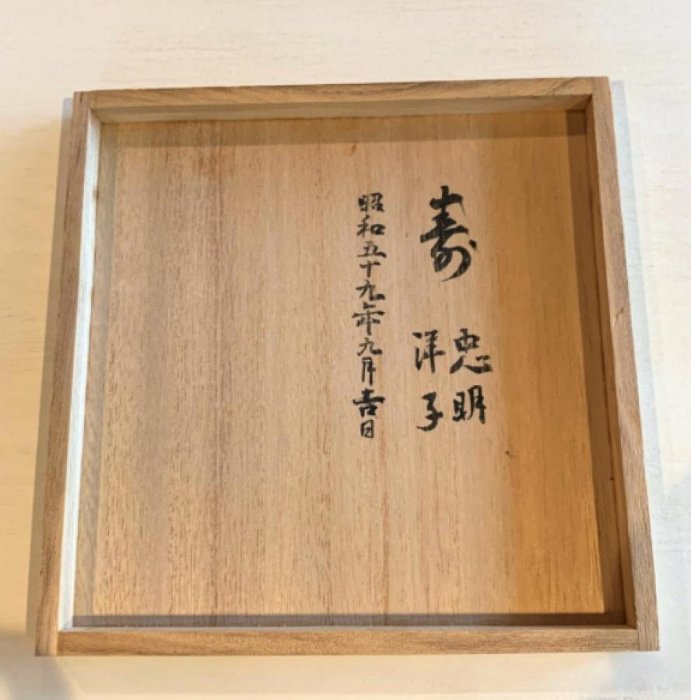 寿
忠明
洋子
昭和五十九年九月吉日